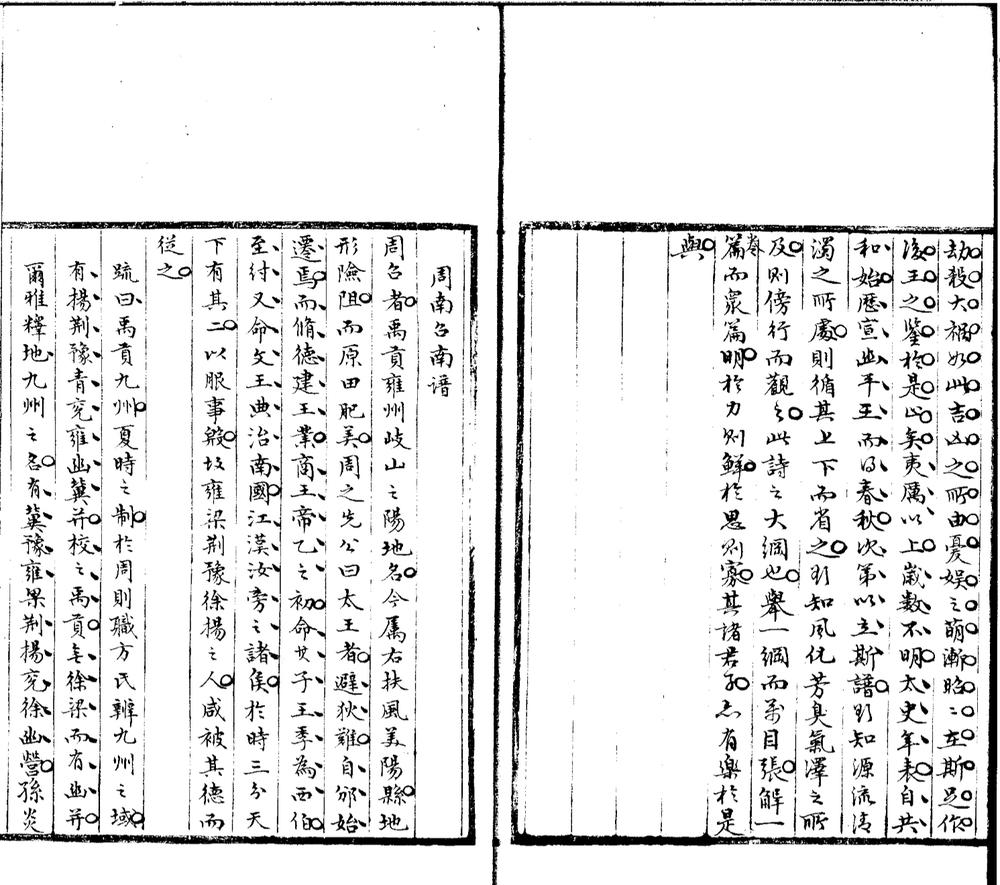 劫殺大禍如此吉凶之所由憂娛之萌漸昭〻在斯足作
後王之鑒於是止矣夷厲以上歲數不明太史年表自共
和始歷宣幽平王而得春秋次第以立斯譜欲知源流清
濁之所處則循其上下而省之欲知風化芳臭氣澤之所
及則傍行而觀之此詩之大綱也舉一綱而萬目張解一
卷篇而衆篇明於力則鮮於思則寡其諸君子亦有樂於是
與
周南召南譜
周召者禹貢雍州岐山之陽地名今屬右扶風美陽縣地
形險阻而原田肥美周之先公曰太王者避狄難自邠始
遷焉而脩德建王業商王帝乙之初命其子王季為西伯
至紂又命文王典治南國江漢汝旁之諸侯於時三分天
下有其二以服事殷故雍梁荆豫徐揚之人咸被其德而
從之
疏曰禹貢九州夏時之制於周則職方氏辨九州之域
有揚荆豫青兖雍幽冀并校之禹貢無徐梁而有幽并
爾雅釋地九州之名有冀豫雍荆揚兖徐幽營孫炎